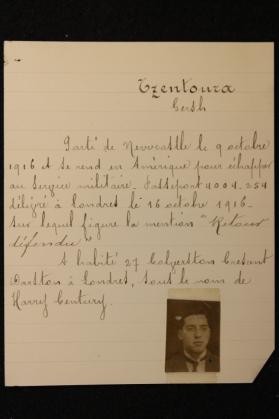 Tzentoura
Gersh
Parti de Newcastle le 9 octobre
1916 et se rend en Amérique pour échapper
au Service militaire. Passeport 4004.254
délivré à Londres le 16 octobre 1916.
sur lequel figure la mention "Retour
défendu"
A habité 27
à Londres, sous le nom de
Harry Century.